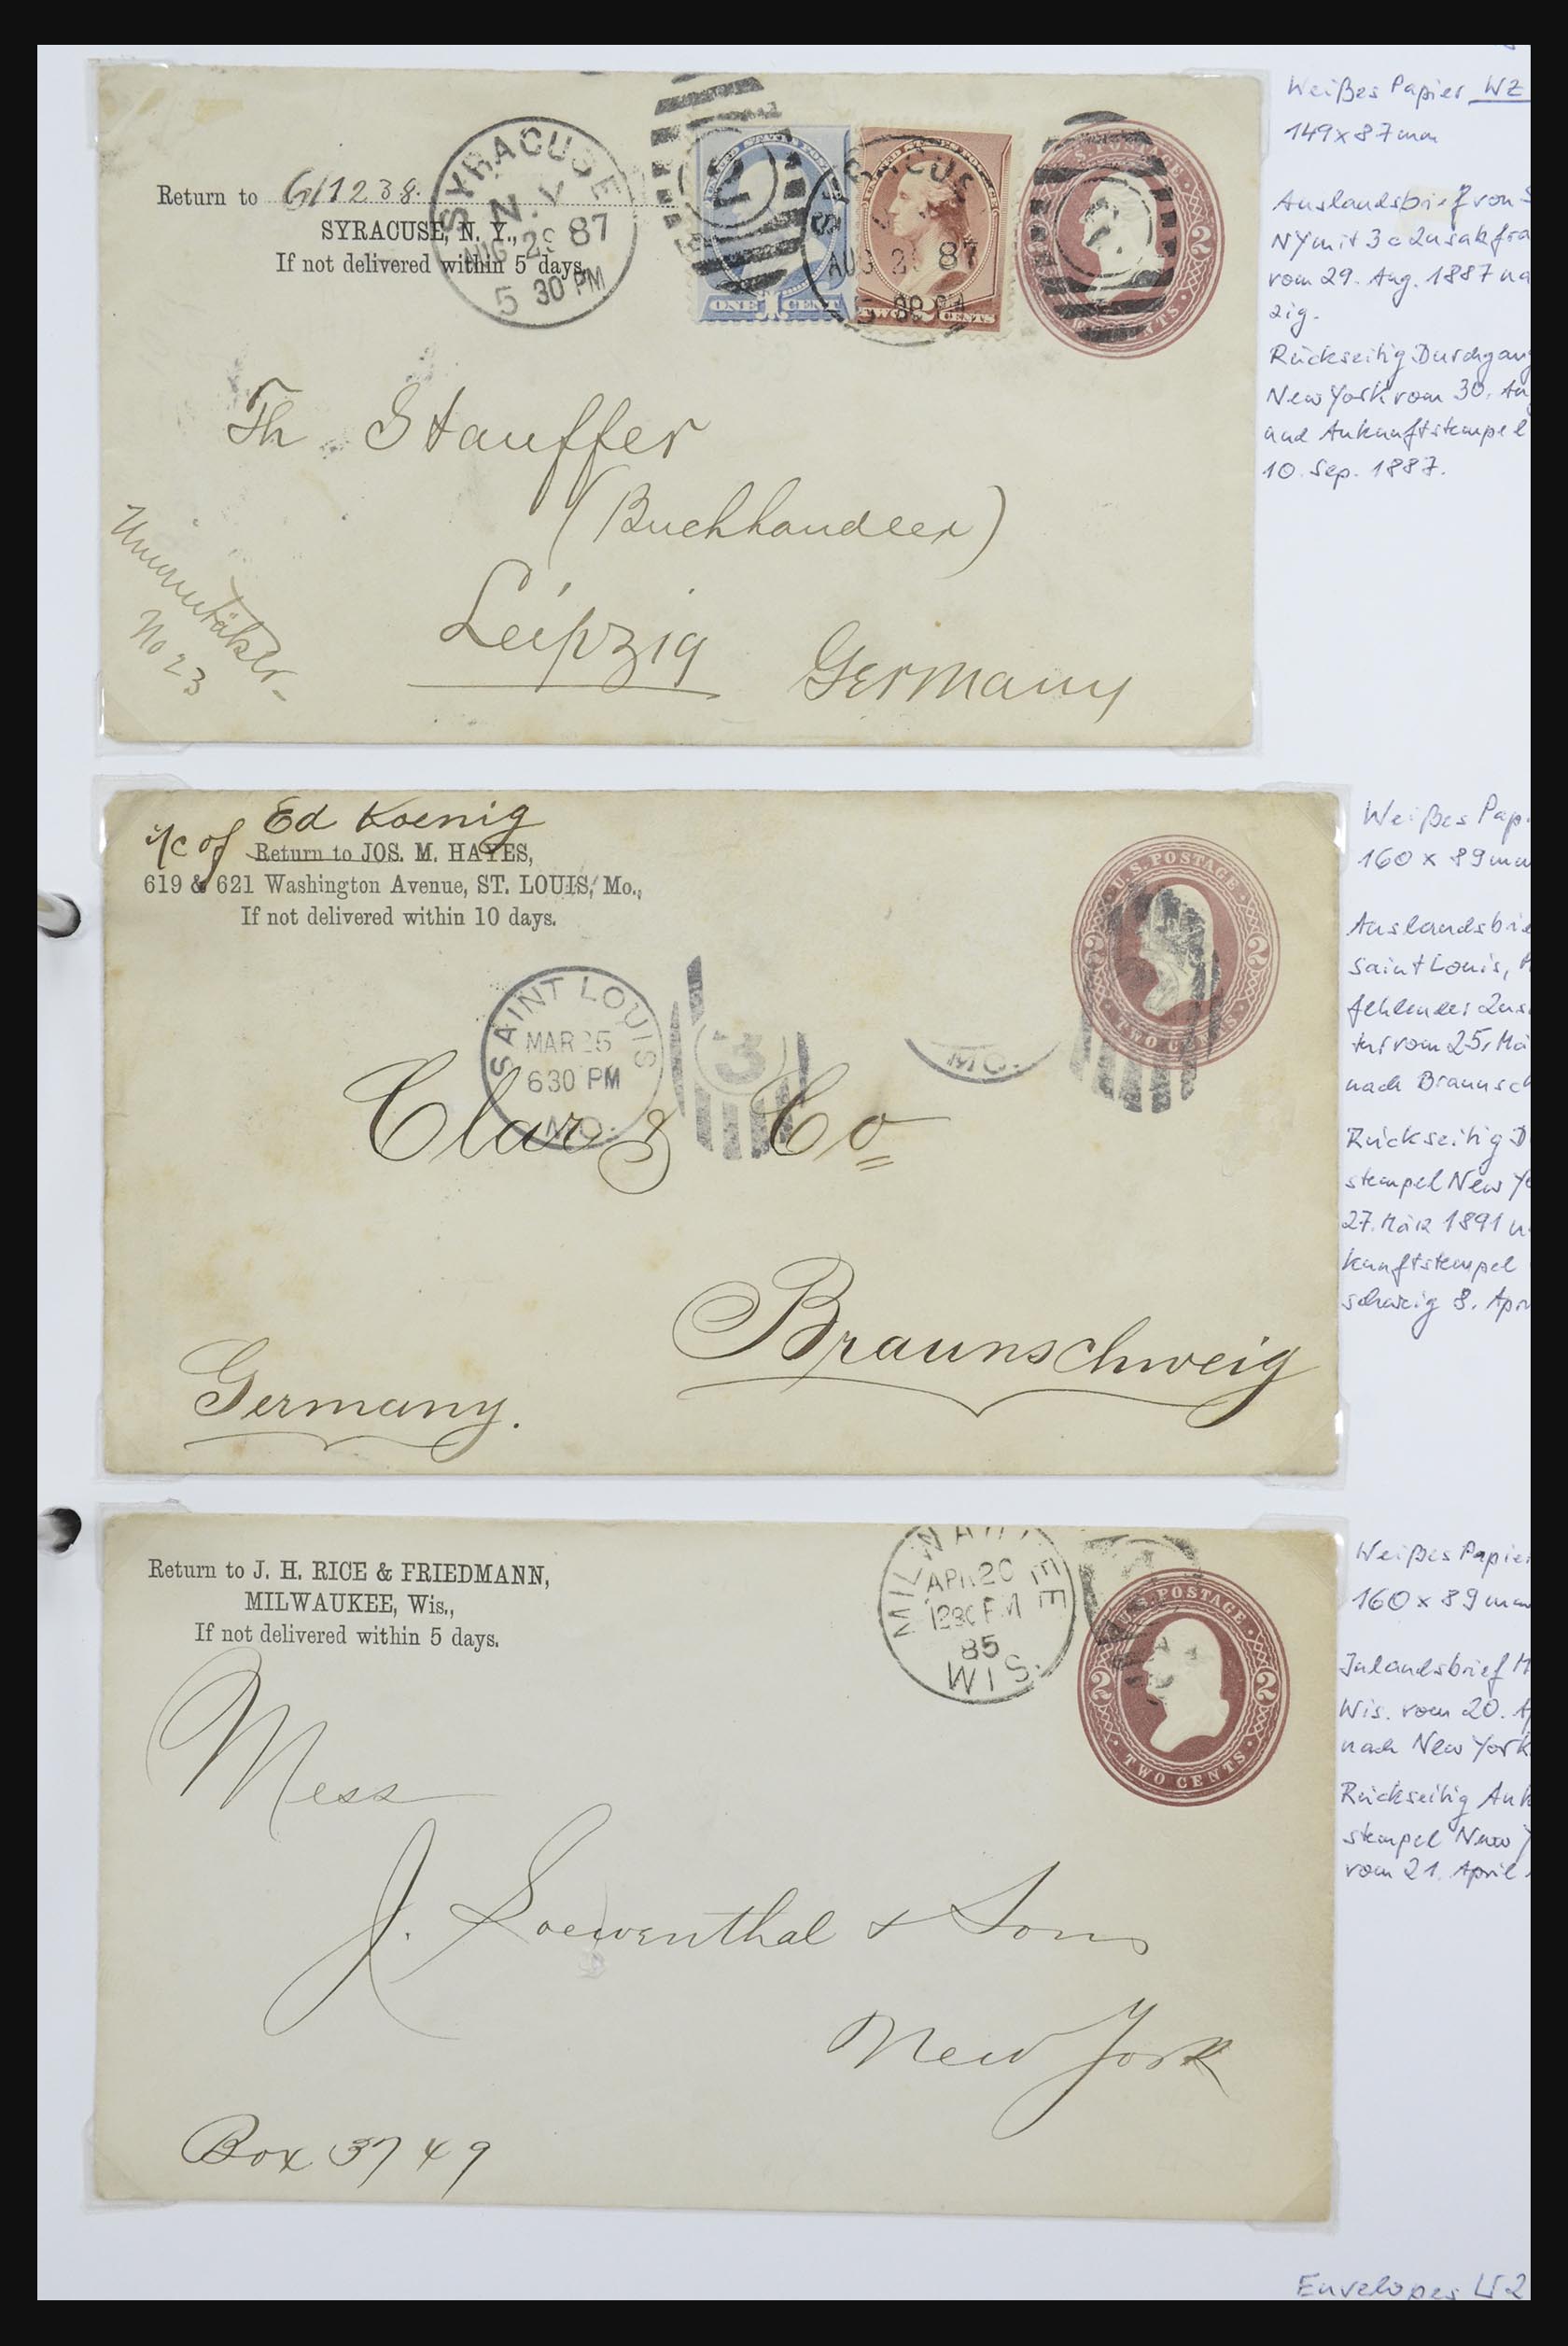 Return to G/1238.
SYRACUSE, N. Y.,
If not delivered within 5 days,
SYRACUSE
N.Y
AUG 29 87
5 30 PM
2
ONE 1 CENT
AUG 29 87
TWO 2 CENTS
U.S. POSTAGE
2
Th Stauffer
(Buchhandler)
Leipzig Germany
No 23
Weißes Papier WZ
149x87mm
Auslandsbrief von
NY mit 3c Zusatzfra
vom 29. Aug. 1887 na
zig.
Rückseitig Durchgang
New York vom 30. Au
und Ankunftstempel
10. Sep. 1887.
Ed Koenig
i/c of Return to JOS. M. HAYES,
619 & 621 Washington Avenue, ST. LOUIS, Mo.,
If not delivered within 10 days.
SAINT LOUIS
MAR 25
630 PM
MO.
3
MO.
U.S. POSTAGE
2 2
TWO CENTS
Clar & Co
Braunschweig
Germany.
Weißes Pap
160 x 89mm
Auslandsbrie
Saint Louis, M
fehlender Zus
vom 25. Mä
nach Braunsch
Rückseitig D
stempel New Yo
27. März 1891 u
kunftstempel
schweig 8. Apr
Return to J. H. RICE & FRIEDMANN,
MILWAUKEE, Wis.,
If not delivered within 5 days.
MILWAUKEE
APR 20
1230 PM
85
WIS.
U.S. POSTAGE
2 2
TWO CENTS
Mess
J. Loewenthal & Sons
New York
Box 3749
Weißes Papier
160 x 89mm
Inlandsbrief M
Wis. vom 20. Ap
nach New York
Rückseitig Ank
stempel New Y
vom 21. April
Envelopes U2